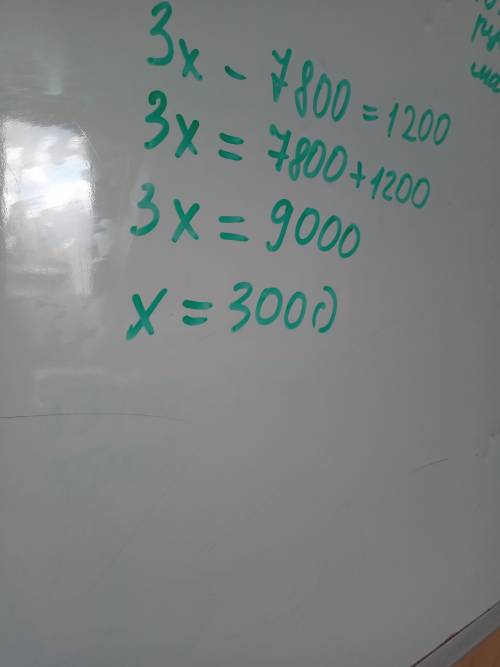 3x - 7800 = 1200
3x = 7800 + 1200
3x = 9000
x = 3000